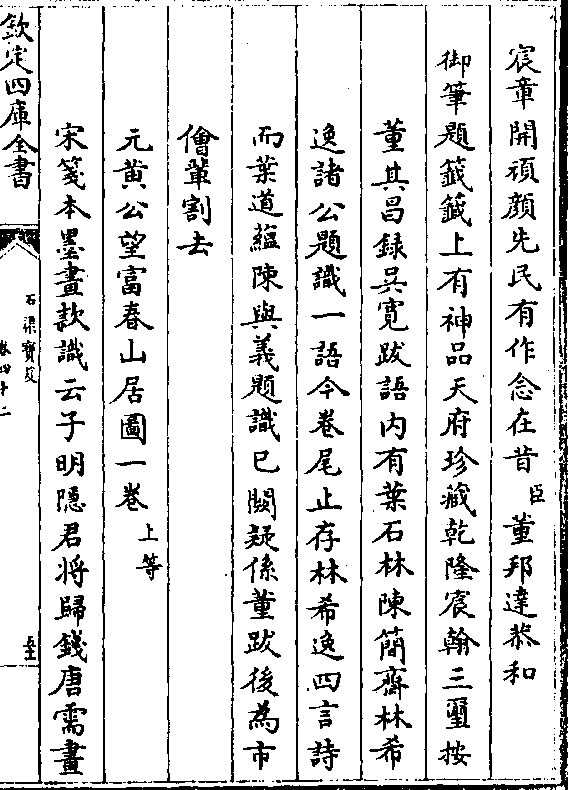 宸章開頑顔先民有作念在昔臣董邦達恭和
御筆題籤籤上有神品天府珍藏乾隆宸翰三璽按
董其昌録吳寛跋語内有葉石林陳簡齋林希
逸諸公題識一語今卷尾止存林希逸四言詩
而葉道蘊陳與義題識已闕疑係董跋後為市
儈輩割去
元黄公望富春山居圖一卷上等
宋箋本墨畫款識云子明隠君将歸錢唐需畫
欽定四庫全書
石渠寶笈
卷四十二